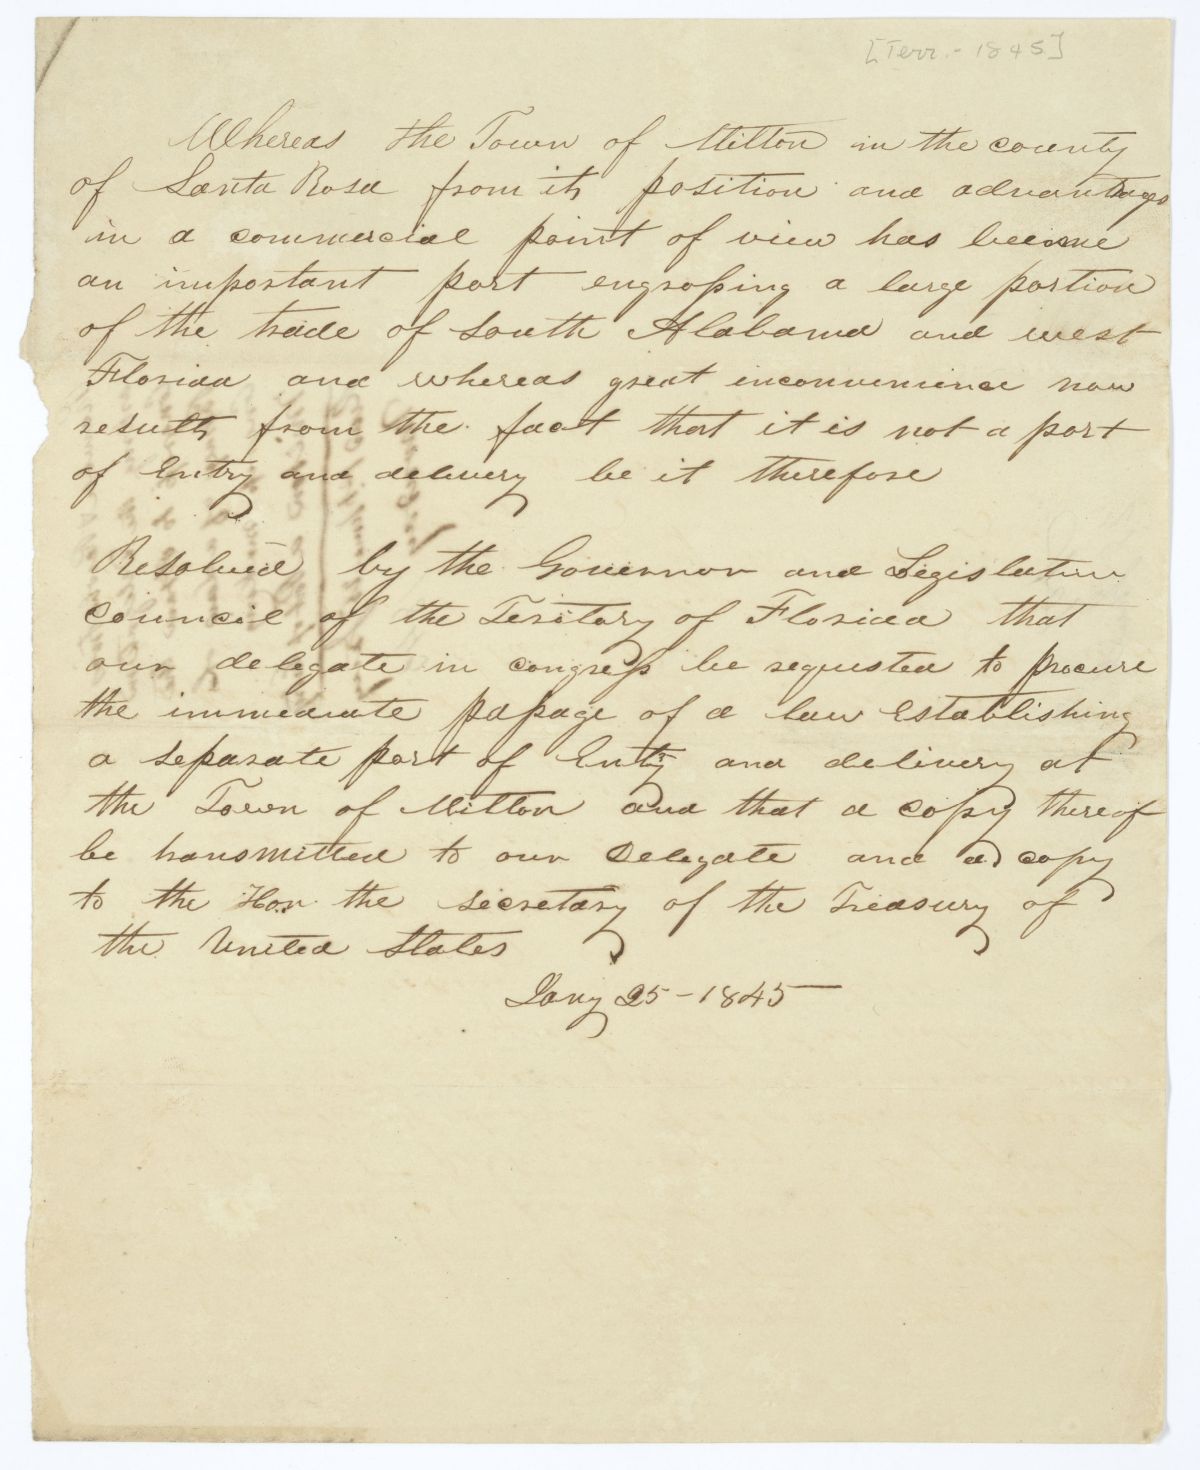 [Terr. - 1845]
Whereas the Town of Milton in the county
of Santa Rosa from its position and advantages
in a commercial point of view has become
an important port engrossing a large portion
of the trade of South Alabama and west
Florida and whereas great inconvenience now
results from the fact that it is not a port
of Entry and delivery be it therefore
Resolved by the Governor and Legislative
Council of the Territory of Florida that
our delegate in congress be requested to procure
the immediate passage of a law Establishing
a separate port of Entry and delivery at
the Town of Milton and that a copy thereof
be transmitted to our Delegate and a copy
to the Hon. the secretary of the Treasury of
the United States
Jany 25 - 1845